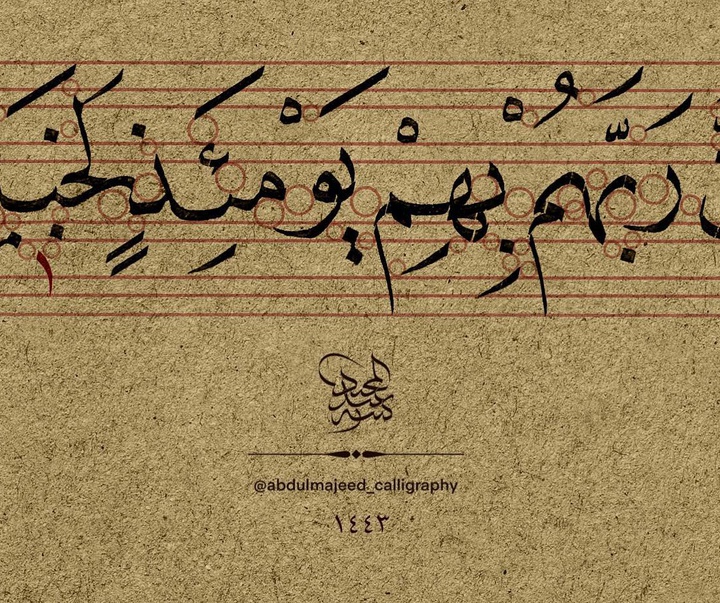 رَبَّهُمْ بِهِمْ يَوْمَئِذٍ لَخَبِيـ
كتبه عبد المجيد
@abdulmajeed_calligraphy
١٤٤٣